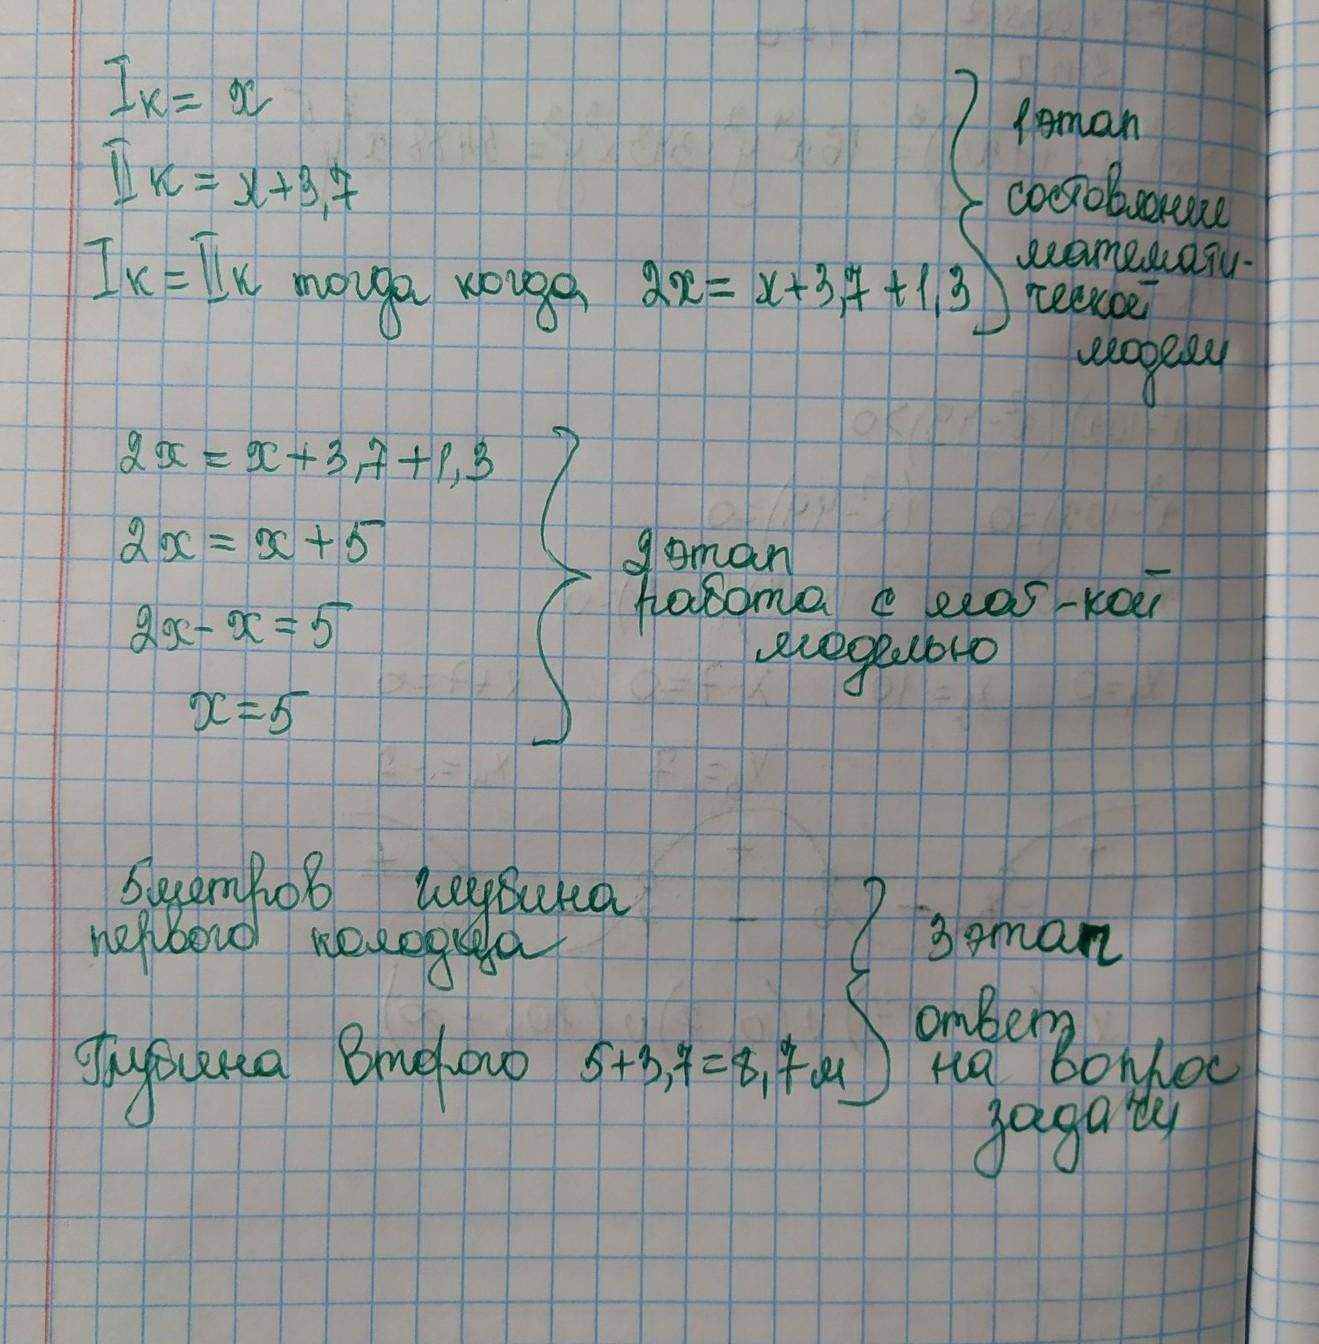 Iк = x
IIк = x+3,7
Iк = IIк тогда когда 2x = x+3,7+1,3
1 этап
составление
математи-
ческой
модели
2x = x+3,7+1,3
2x = x+5
2x-x=5
x=5
2 этап
работа с мат-кой
моделью
5метров глубина
первого колодца
Глубина второго 5+3,7=8,7м
3 этап
ответ
на вопрос
задачи